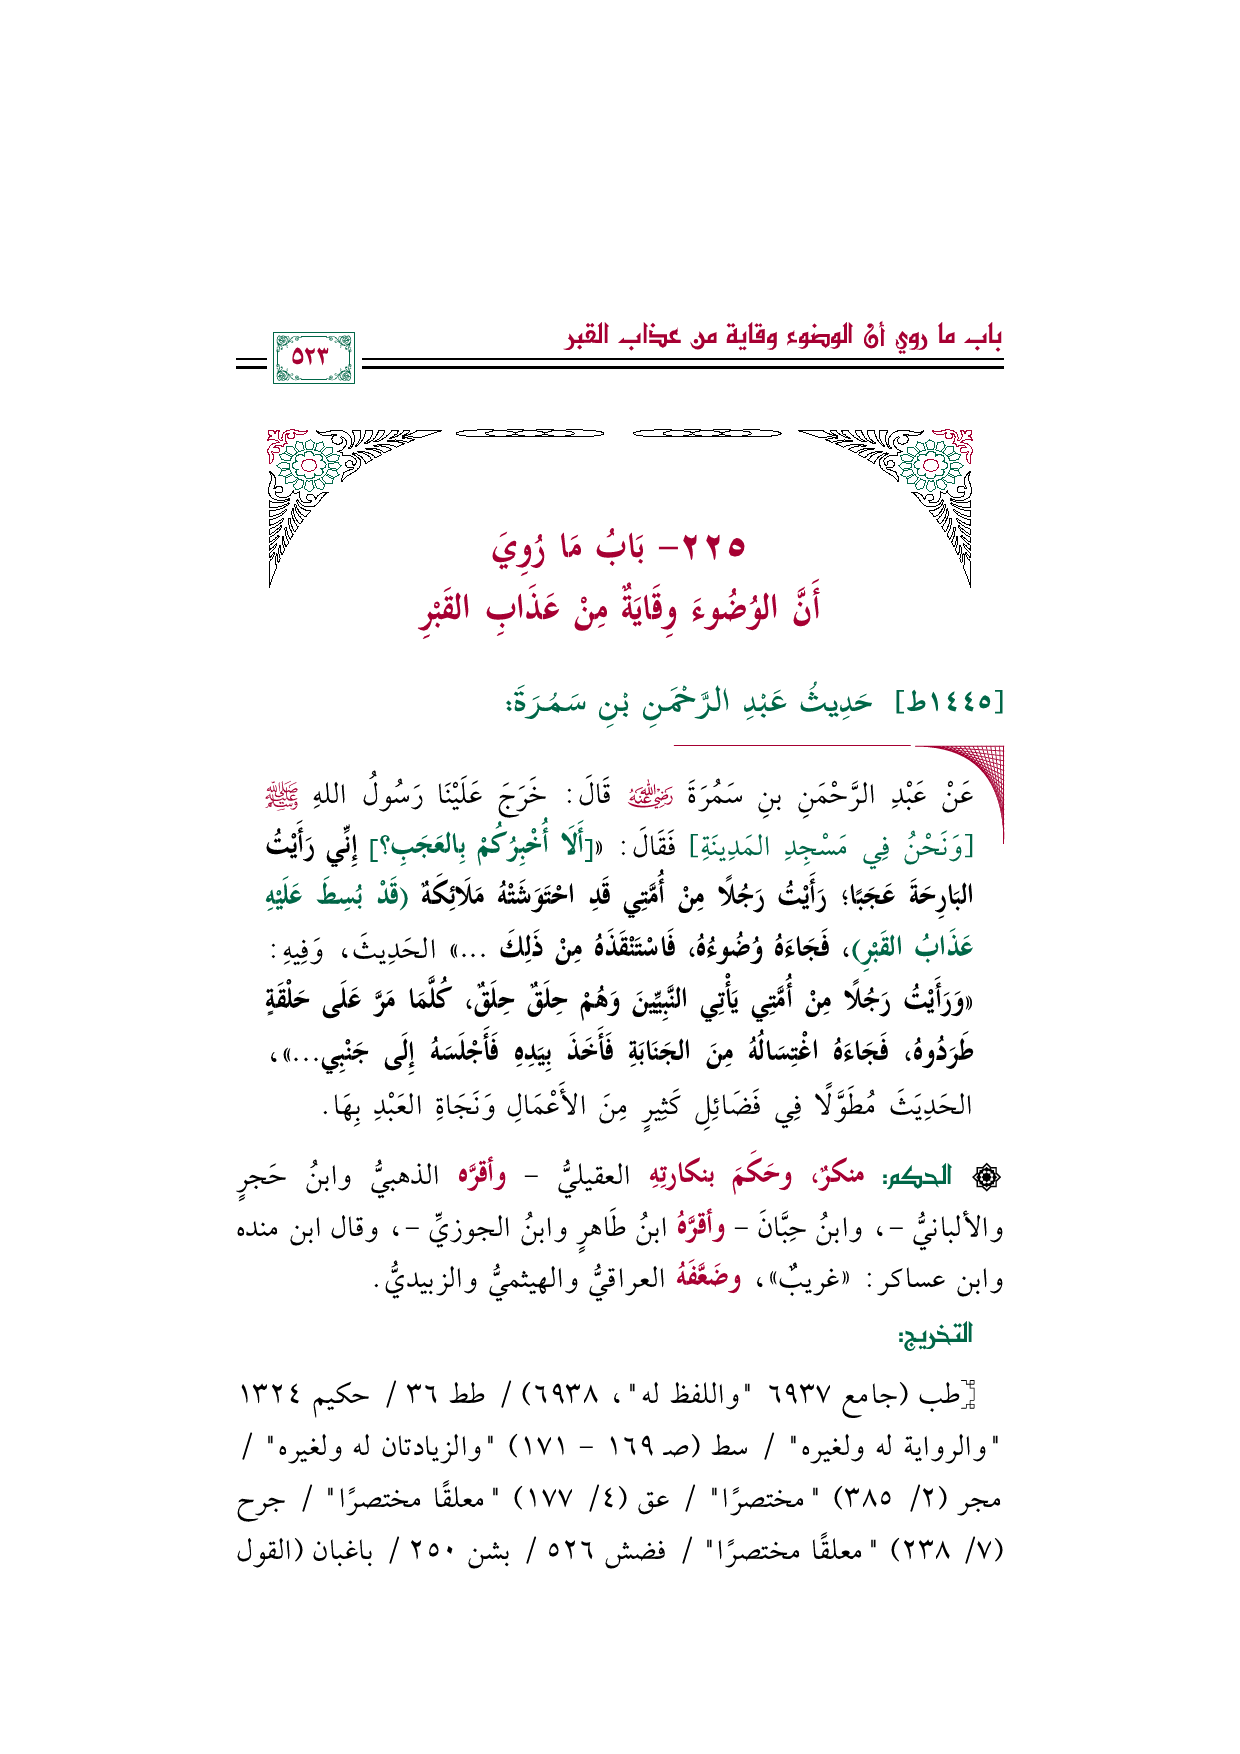 باب ما روي أن الوضوء وقاية من عذاب القبر
٥٢٣
٢٢٥- بَابُ مَا رُوِيَ
أَنَّ الوُضُوءَ وِقَايَةٌ مِنْ عَذَابِ القَبْرِ
[١٤٤٥ط] حَدِيثُ عَبْدِ الرَّحْمَنِ بْنِ سَمُرَةَ:
عَنْ عَبْدِ الرَّحْمَنِ بنِ سَمُرَةَ رضي الله عنه قَالَ: خَرَجَ عَلَيْنَا رَسُولُ اللهِ ﷺ
[وَنَحْنُ فِي مَسْجِدِ المَدِينَةِ] فَقَالَ: «[أَلَا أُخْبِرُكُمْ بِالعَجَبِ؟] إِنِّي رَأَيْتُ
البَارِحَةَ عَجَبًا؛ رَأَيْتُ رَجُلًا مِنْ أُمَّتِي قَدِ احْتَوَشَتْهُ مَلَائِكَةٌ (قَدْ بُسِطَ عَلَيْهِ
عَذَابُ القَبْرِ)، فَجَاءَهُ وُضُوءُهُ، فَاسْتَنْقَذَهُ مِنْ ذَلِكَ ...» الحَدِيثَ، وَفِيهِ:
«وَرَأَيْتُ رَجُلًا مِنْ أُمَّتِي يَأْتِي النَّبِيِّينَ وَهُمْ حِلَقٌ حِلَقٌ، كُلَّمَا مَرَّ عَلَى حَلْقَةٍ
طَرَدُوهُ، فَجَاءَهُ اغْتِسَالُهُ مِنَ الجَنَابَةِ فَأَخَذَ بِيَدِهِ فَأَجْلَسَهُ إِلَى جَنْبِي...»،
الحَدِيَثَ مُطَوَّلًا فِي فَضَائِلِ كَثِيرٍ مِنَ الأَعْمَالِ وَنَجَاةِ العَبْدِ بِهَا.
الحكم: منكرٌ، وحَكَمَ بنكارتِهِ العقيليُّ – وأقرَّه الذهبيُّ وابنُ حَجرٍ
والألبانيُّ –، وابنُ حِبَّانَ – وأقرَّهُ ابنُ طَاهرٍ وابنُ الجوزيِّ –، وقال ابن منده
وابن عساكر: «غريبٌ»، وضَعَّفَهُ العراقيُّ والهيثميُّ والزبيديُّ.
التخريج:
طب (جامع ٦٩٣٧ "واللفظ له"، ٦٩٣٨) / طط ٣٦ / حكيم ١٣٢٤
"والرواية له ولغيره" / سط (صـ ١٦٩ – ١٧١) "والزيادتان له ولغيره" /
مجر (٢/ ٣٨٥) "مختصرًا" / عق (٤/ ١٧٧) "معلقًا مختصرًا" / جرح
(٧/ ٢٣٨) "معلقًا مختصرًا" / فضش ٥٢٦ / بشن ٢٥٠ / باغبان (القول